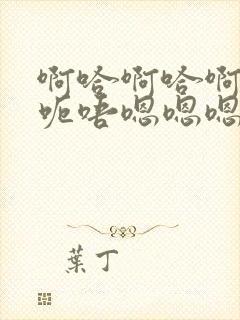 啊哈啊哈啊
呃唔嗯嗯嗯
葉丁